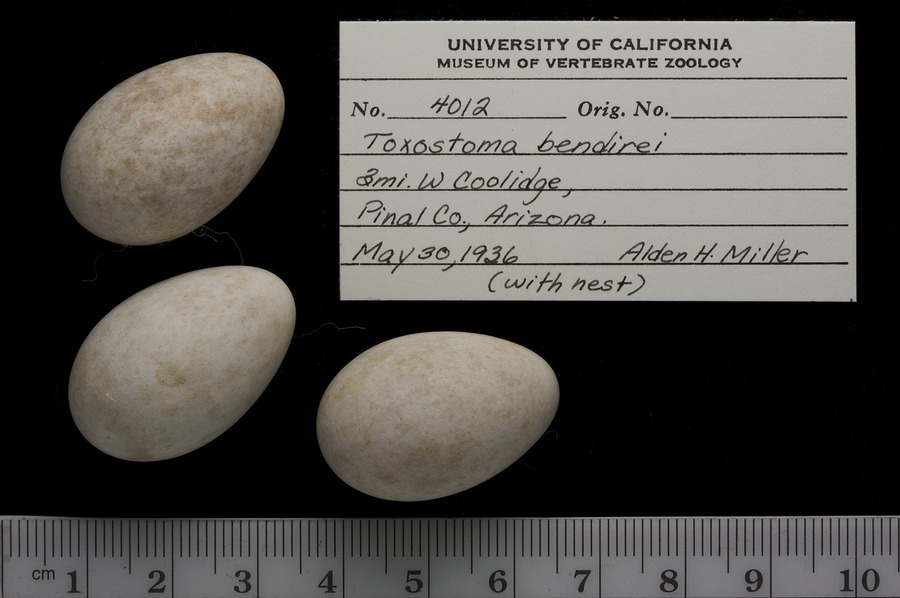 UNIVERSITY OF CALIFORNIA
MUSEUM OF VERTEBRATE ZOOLOGY
No. 4012 Orig. No.
Toxostoma bendirei
3mi. W Coolidge,
Pinal Co., Arizona.
May 30, 1936 Alden H. Miller
(with nest)
cm 1 2 3 4 5 6 7 8 9 10